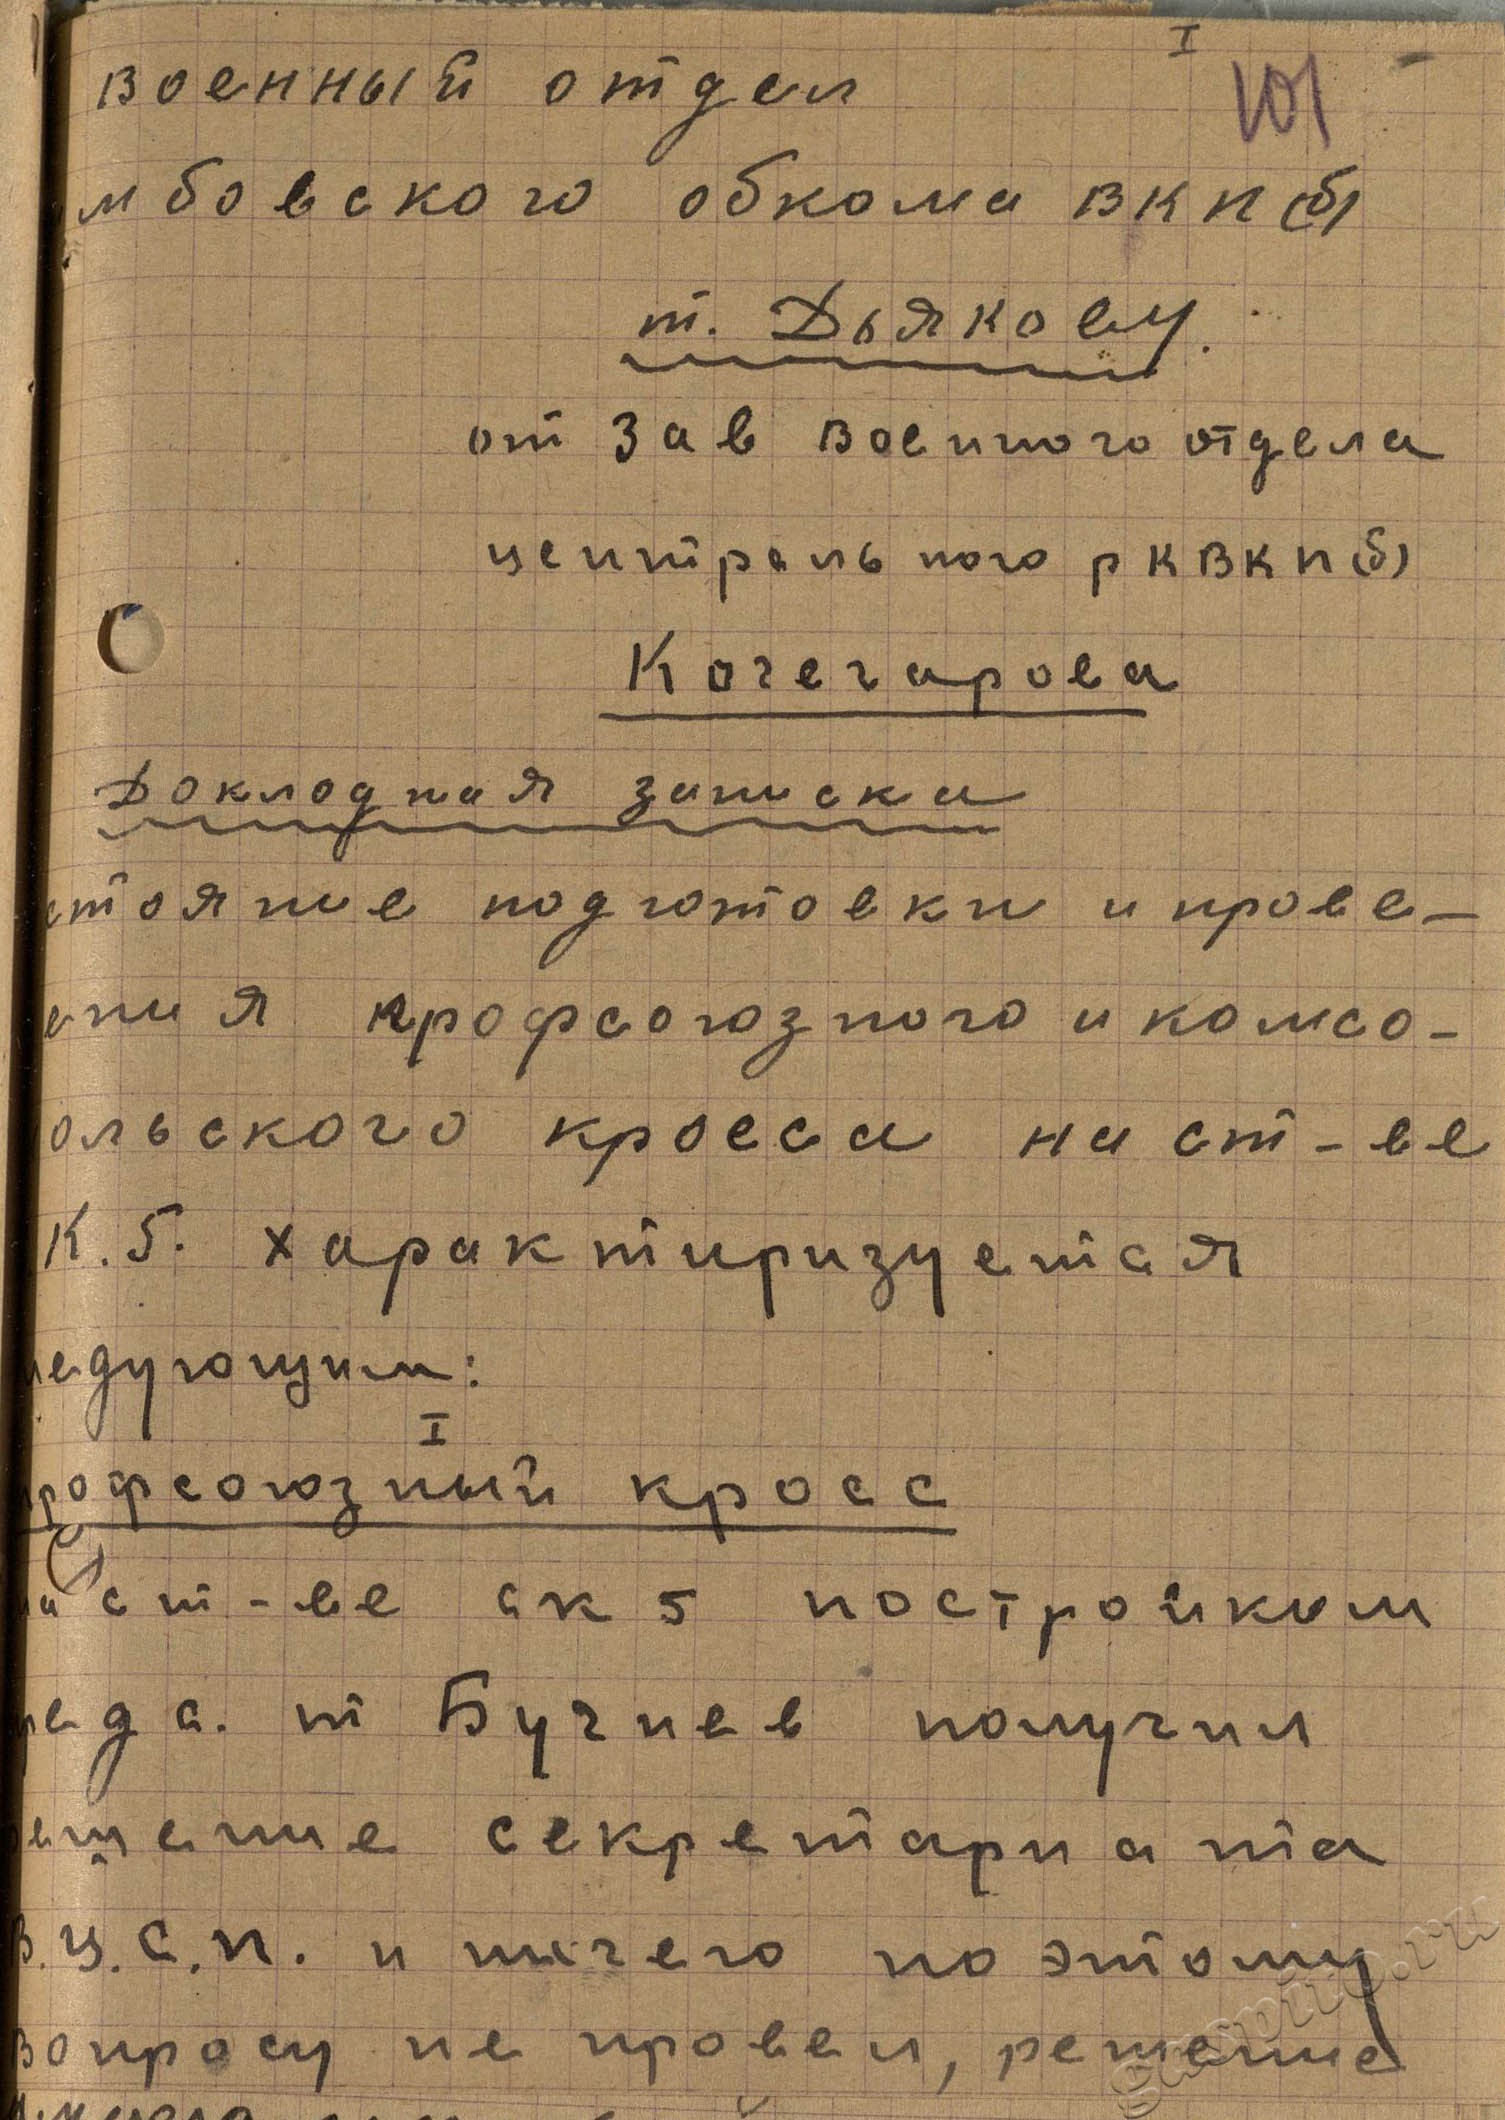 I
101
военный отдел
мбовского обкома ВКП(б)
т. Дьякову.
от Зав военного отдела
центрального РКВКП(б)
Кочегарова
Докладная записка
стояние подготовки и прове-
ения профсоюзного и комсо-
ольского кросса на ст-ве
К.Б. характиризуется
ледующим:
I
профсоюзный кросс
на ст-ве СКБ постройком
ред с. т Бучнев получил
решение секретариата
В.Ц.С.П. и ничего по этому
вопросу не провел, решение
gaspito.ru